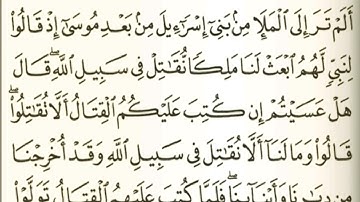 أَلَمْ تَرَ إِلَى ٱلْمَلَإِ مِنۢ بَنِىٓ إِسْرَٰٓءِيلَ مِنۢ بَعْدِ مُوسَىٰٓ إِذْ قَالُوا۟
لِنَبِىٍّ لَّهُمُ ٱبْعَثْ لَنَا مَلِكًا نُّقَٰتِلْ فِى سَبِيلِ ٱللَّهِ ۖ قَالَ
هَلْ عَسَيْتُمْ إِن كُتِبَ عَلَيْكُمُ ٱلْقِتَالُ أَلَّا تُقَٰتِلُوا۟ ۖ
قَالُوا۟ وَمَا لَنَآ أَلَّا نُقَٰتِلَ فِى سَبِيلِ ٱللَّهِ وَقَدْ أُخْرِجْنَا
مِن دِيَٰرِنَا وَأَبْنَآئِنَا ۖ فَلَمَّا كُتِبَ عَلَيْهِمُ ٱلْقِتَالُ تَوَلَّوْا۟